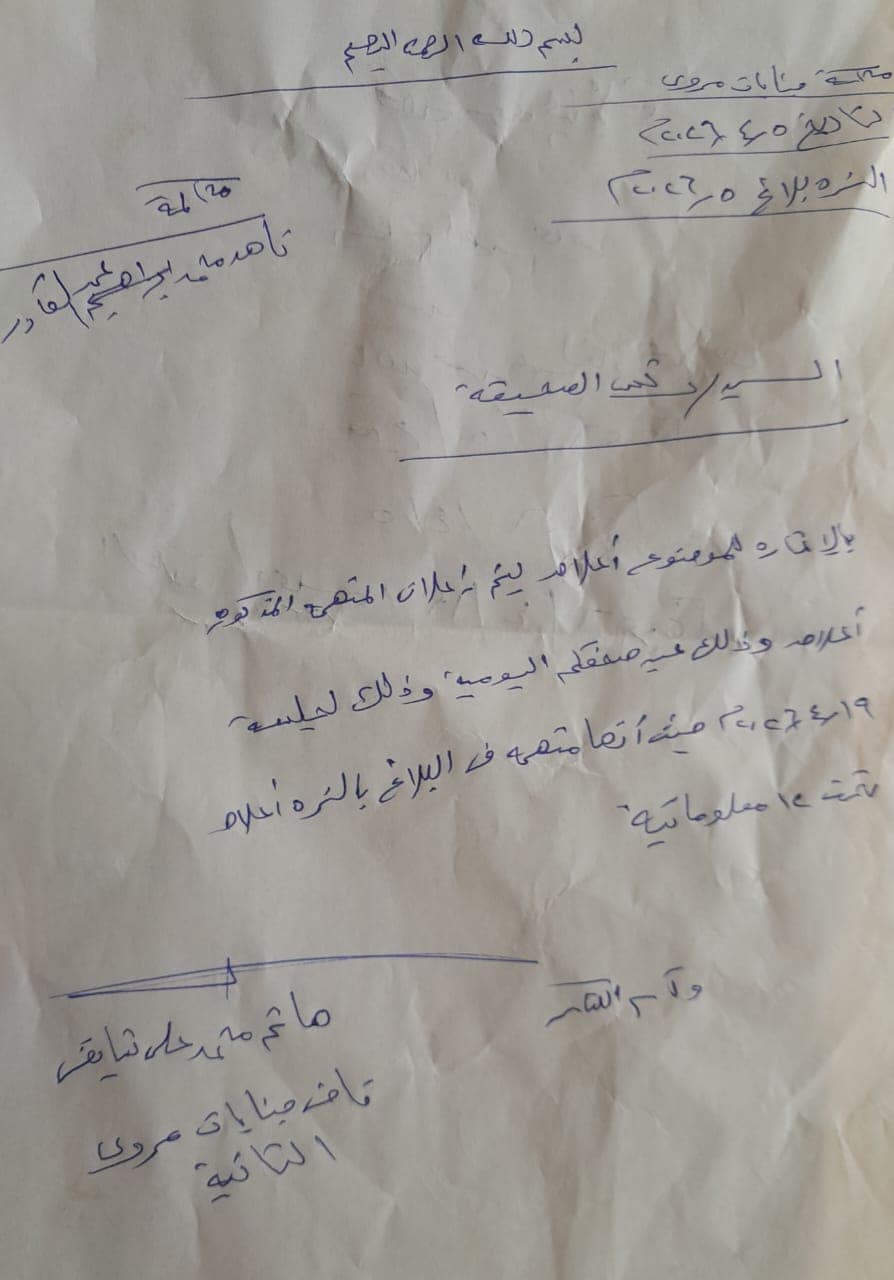 بسم الله الرحمن الرحيم
محكمة جنايات مروى
بتاريخ ٢٠٢٦/٤/٥م
النمره بلاغ ٢٠٢٦/٥م
محاكمة
ناهد محمد ابراهيم عبد القادر
السيد/ الصحيفة
بالإشاره للموضوع أعلاه يتم إعلان المتهمه المذكوره
أعلاه وذلك عبر صحفكم اليومية وذلك لجلسة
٢٠٢٦/٤/١٩م حيث أنها متهمه فى البلاغ بالنمره أعلاه
تحت معلوماتية
ولكم الشكر
هاتم محمد على شايقى
قاضى جنايات مروى
الثانية